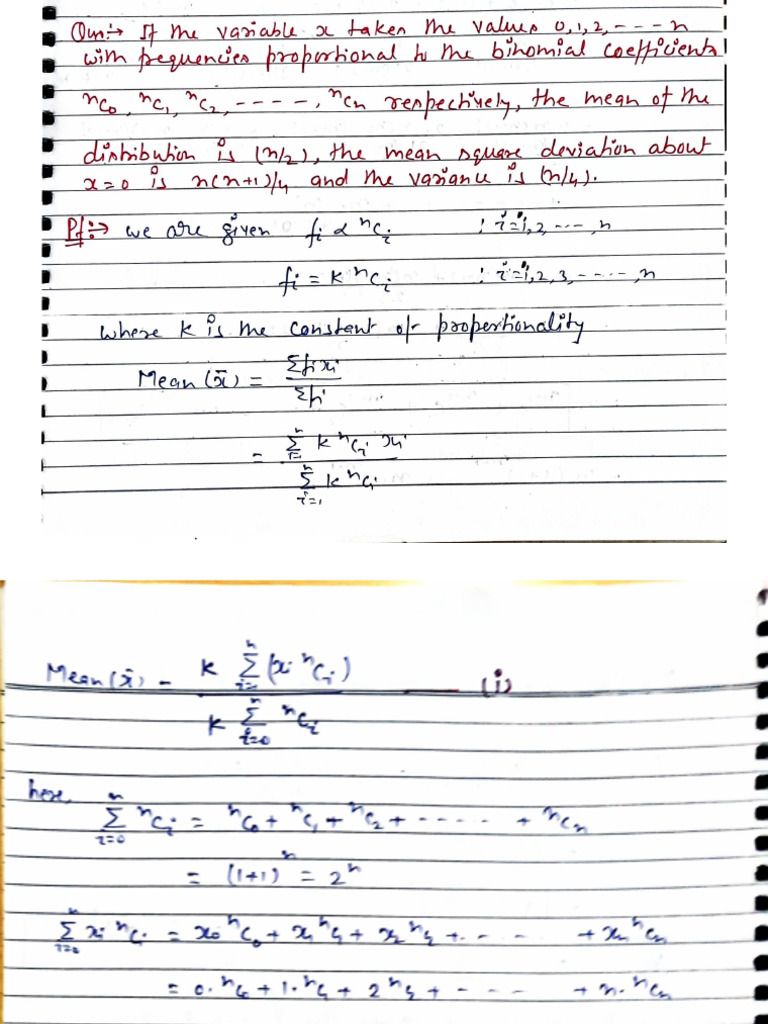 Qus:→ If the variable x takes the values 0,1,2, ---- n
with frequencies proportional to the binomial coefficients
ⁿC₀, ⁿC₁, ⁿC₂, - - - - -, ⁿCₙ respectively, the mean of the
distribution is (n/2), the mean square deviation about
x=0 is n(n+1)/4 and the variance is (n/4).
Pf:→ we are given fi ∝ ⁿCi ; i=1,2, ----, n
fi = k ⁿCi ; i=1,2,3, - - - - -, n
where k is the constant of propertionality
Mean (x̄) = Σfixi / Σfi
= Σⁿi= k ⁿCi xi / Σⁿi=1 k ⁿCi
Mean (x̄) = k Σⁿi= (xi ⁿCi) / k Σⁿi=0 ⁿCi ——— (i)
here,
Σⁿi=0 ⁿCi = ⁿC₀ + ⁿC₁ + ⁿC₂ + - - - - - + ⁿCₙ
= (1+1)ⁿ = 2ⁿ
Σⁿi=0 xi ⁿCi = x₀ ⁿC₀ + x₁ ⁿC₁ + x₂ ⁿC₂ + - - - - + xₙ ⁿCₙ
= 0·ⁿC₀ + 1·ⁿC₁ + 2 ⁿC₂ + - - - - + n·ⁿCₙ